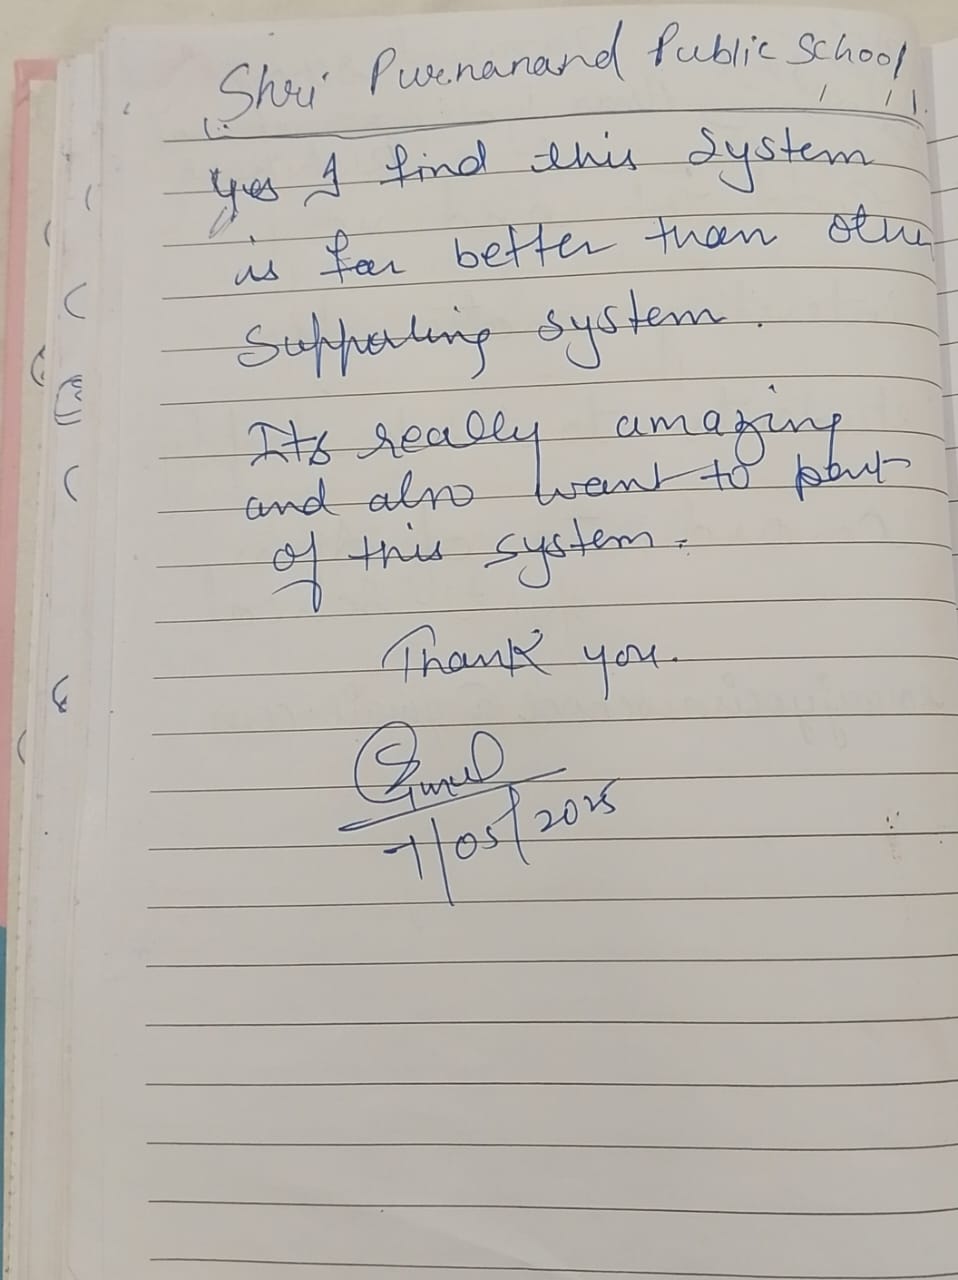 Shri Purnanand Public School
Yes I find this System
is far better than other
Supporting system.
Its really amazing
and also want to part
of this system.
Thank you.
7/05/2025